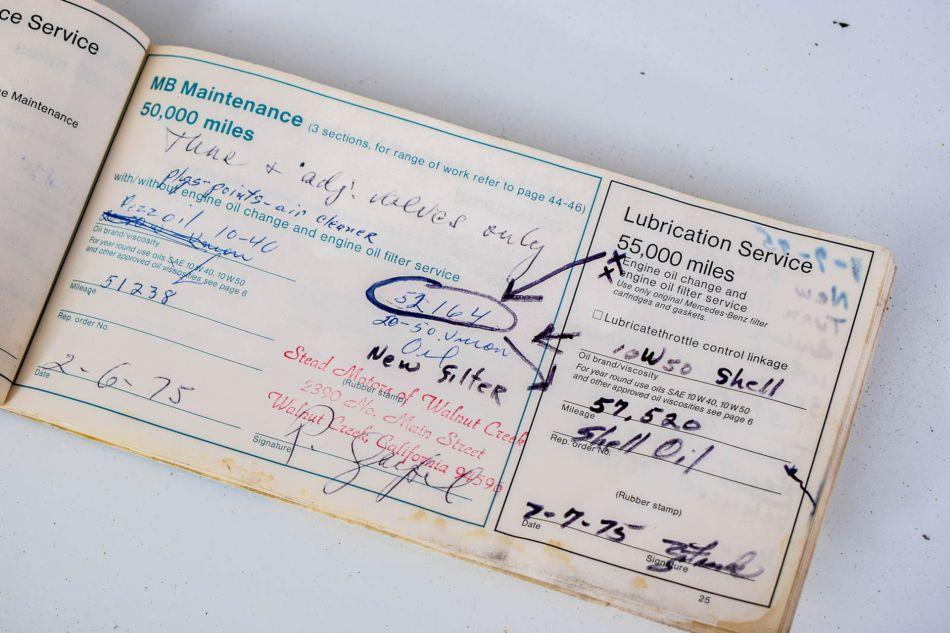 ce Service
e Maintenance
MB Maintenance
50,000 miles (3 sections, for range of work refer to page 44-46)
Tune + adj. valves only
plgs-points-air cleaner
with/without engine oil change and engine oil filter service
oil 10-40
Union
Oil brand/viscosity
For year round use oils SAE 10 W 40, 10 W 50
and other approved oil viscosities see page 6
51238
Mileage
Rep. order No.
2-6-75
Date
52164
20-50 Union
Oil
New Filter
Stead Motors of Walnut Creek
(Rubber stamp)
2390 No. Main Street
Walnut Creek, California 94596
Signature
Lubrication Service
55,000 miles
x Engine oil change and
x engine oil filter service
Use only original Mercedes-Benz filter
cartridges and gaskets.
Lubricate throttle control linkage
10W50 Shell
Oil brand/viscosity
For year round use oils SAE 10 W 40, 10 W 50
and other approved oil viscosities see page 6
57,520
Mileage
Shell Oil
Rep. order No.
(Rubber stamp)
7-7-75
Date
Signature
25